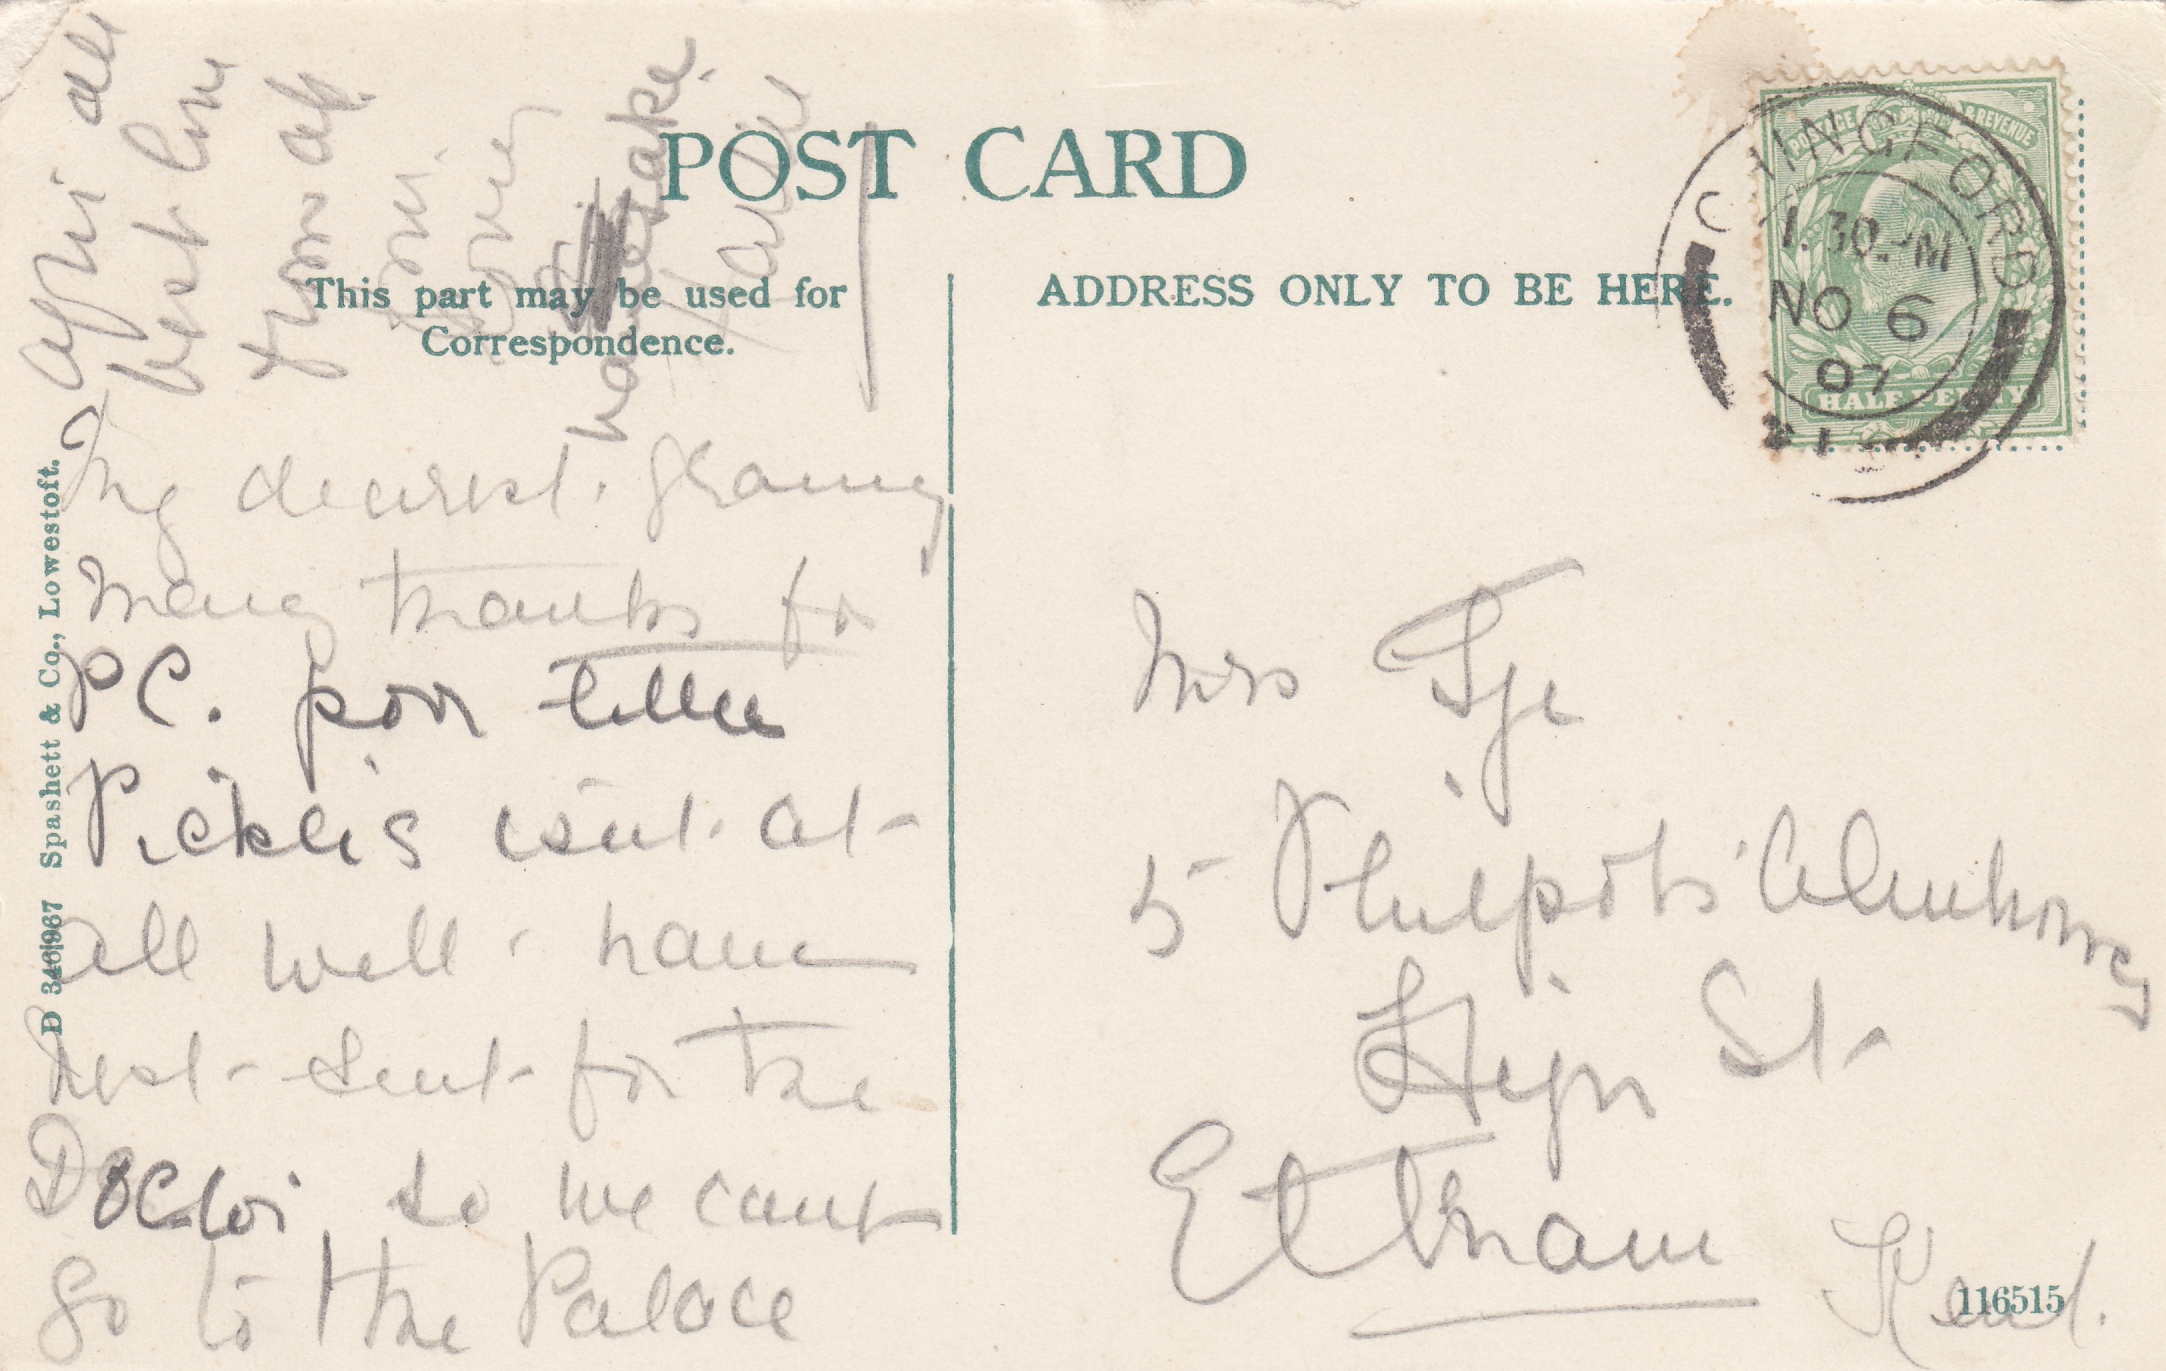 POST CARD
This part may be used for
Correspondence.
ADDRESS ONLY TO BE HERE.
POSTAGE REVENUE
HALF PENNY
CHINGFORD
1.30 PM
NO 6
07
D 346|967 Spashett & Co., Lowestoft.
116515
My dearest granny
Many thanks for
PC. poor little
Pickles isnt at
all well have
just sent for the
Doctor so we cant
go to the Palace
after all
best love
from all
your
loving
namesake.
Mrs Tye
5 Philpots Almhouses
High St
Eltham
Kent.